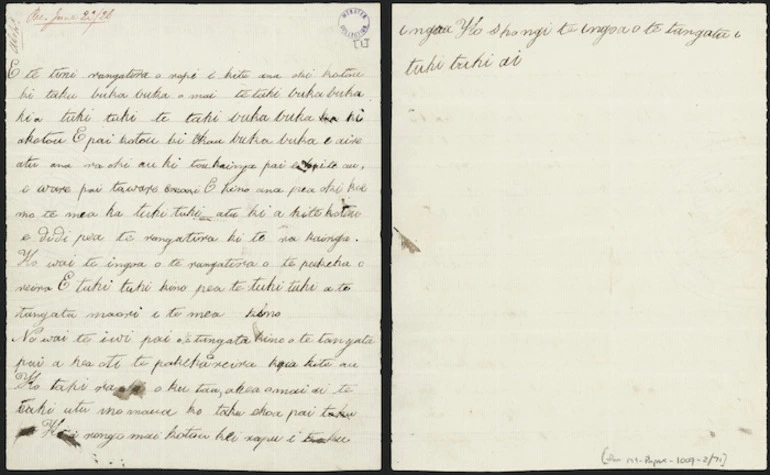 Rec. June 22/26
WEBSTER COLLECTION
E te tini rangatira o ropi i kite ana oki kotou
ki taku buka buka o mai te tuki buka buka
kia tuki tuki te taki buka buka ki
akotou E pai kotou ki Okau buka buka e aire
atu ana ra oki au ki toukainga pai e kite au,
e ware pai taware E kino ana pea oki koe
mo te mea ka tuki tuki atu ki a kite kotou
e didi pea te rangatira ki to ra kainga.
Ko wai te ingoa o te rangatira o te pakeha o
reira E tuki tuki kino pea te tuki tuki a te
tangata maori i te mea kino
No wai te iwi pai o tangata kino o te tangata
pai a kea oti te pakeha reira koia kite au
Ko taki o ku tau, akea omai ai te
taki utu mo maua ko taku ekoa pai taku
Kia rongo mai kotou kei rapu i taku
ingoa Ko Shongi te ingoa o te tangata i
tuki tuki ai
(See MS-Papers-1009-2/71)